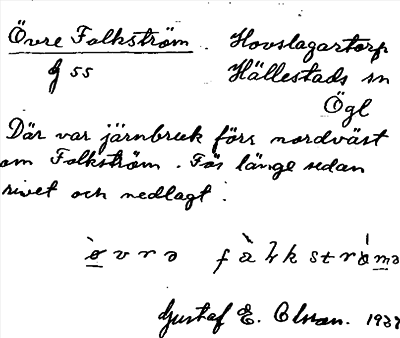 Övre Falkström. Hovslagartorp
g 55 Hällestads sn
Ögl
Där var järnbruk förr nordväst
om Falkström. För länge sedan
rivet och nedlagt.
Gustaf E. Olsson.